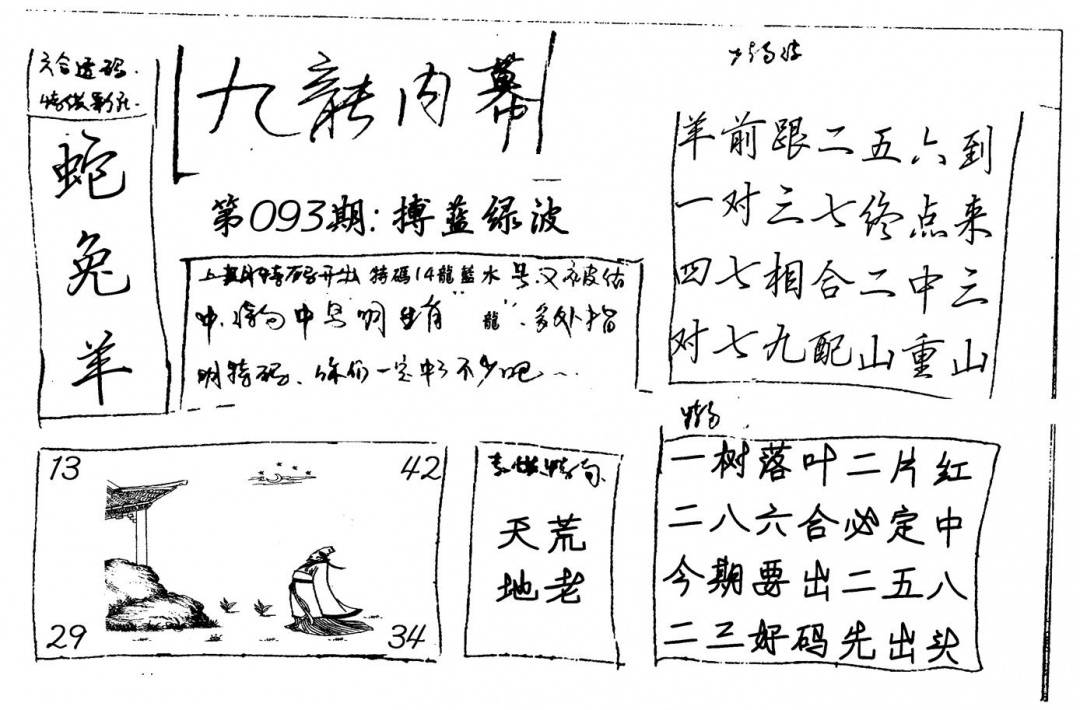 六合透码
特供彩
蛇
兔
羊
九龍内幕
第093期:搏蓝绿波
上期特码开出 特碼14龍藍水号又被估
中,中号明生肖"龍".多处指
明特码、你们一定中了不少吧~
羊前跟二五六到
一对三七终点来
四七相合二中三
对七九配山重山
13
42
29
34
天荒
地老
一树落叶二片红
二八六合必定中
今期要出二五八
二三好码先出头